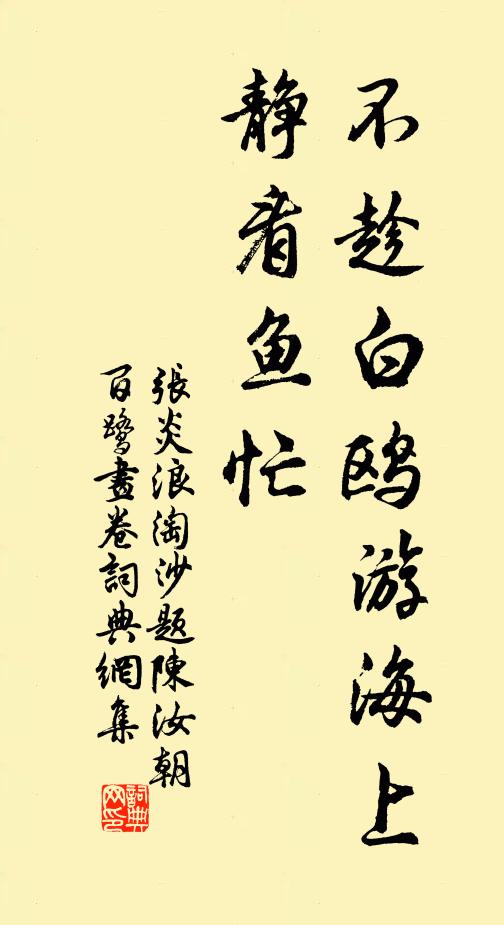 不趁白鸥游海上
静看鱼忙
張炎浪淘沙題陳汝朝
百鷺畫卷詞典網集
詞典
网印